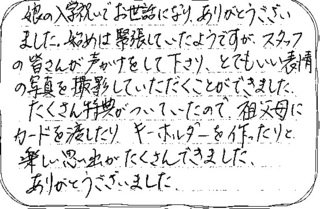 娘の入学祝いでお世話になり、ありがとうござい
ました。始めは緊張していたようですが、スタッフ
の皆さんが声かけをして下さり、とてもいい表情
の写真を撮影していただくことができました。
たくさん特典がついていたので、祖父母に
カードを渡したり、キーホルダーを作ったりと
楽しい思い出がたくさんできました。
ありがとうございました。